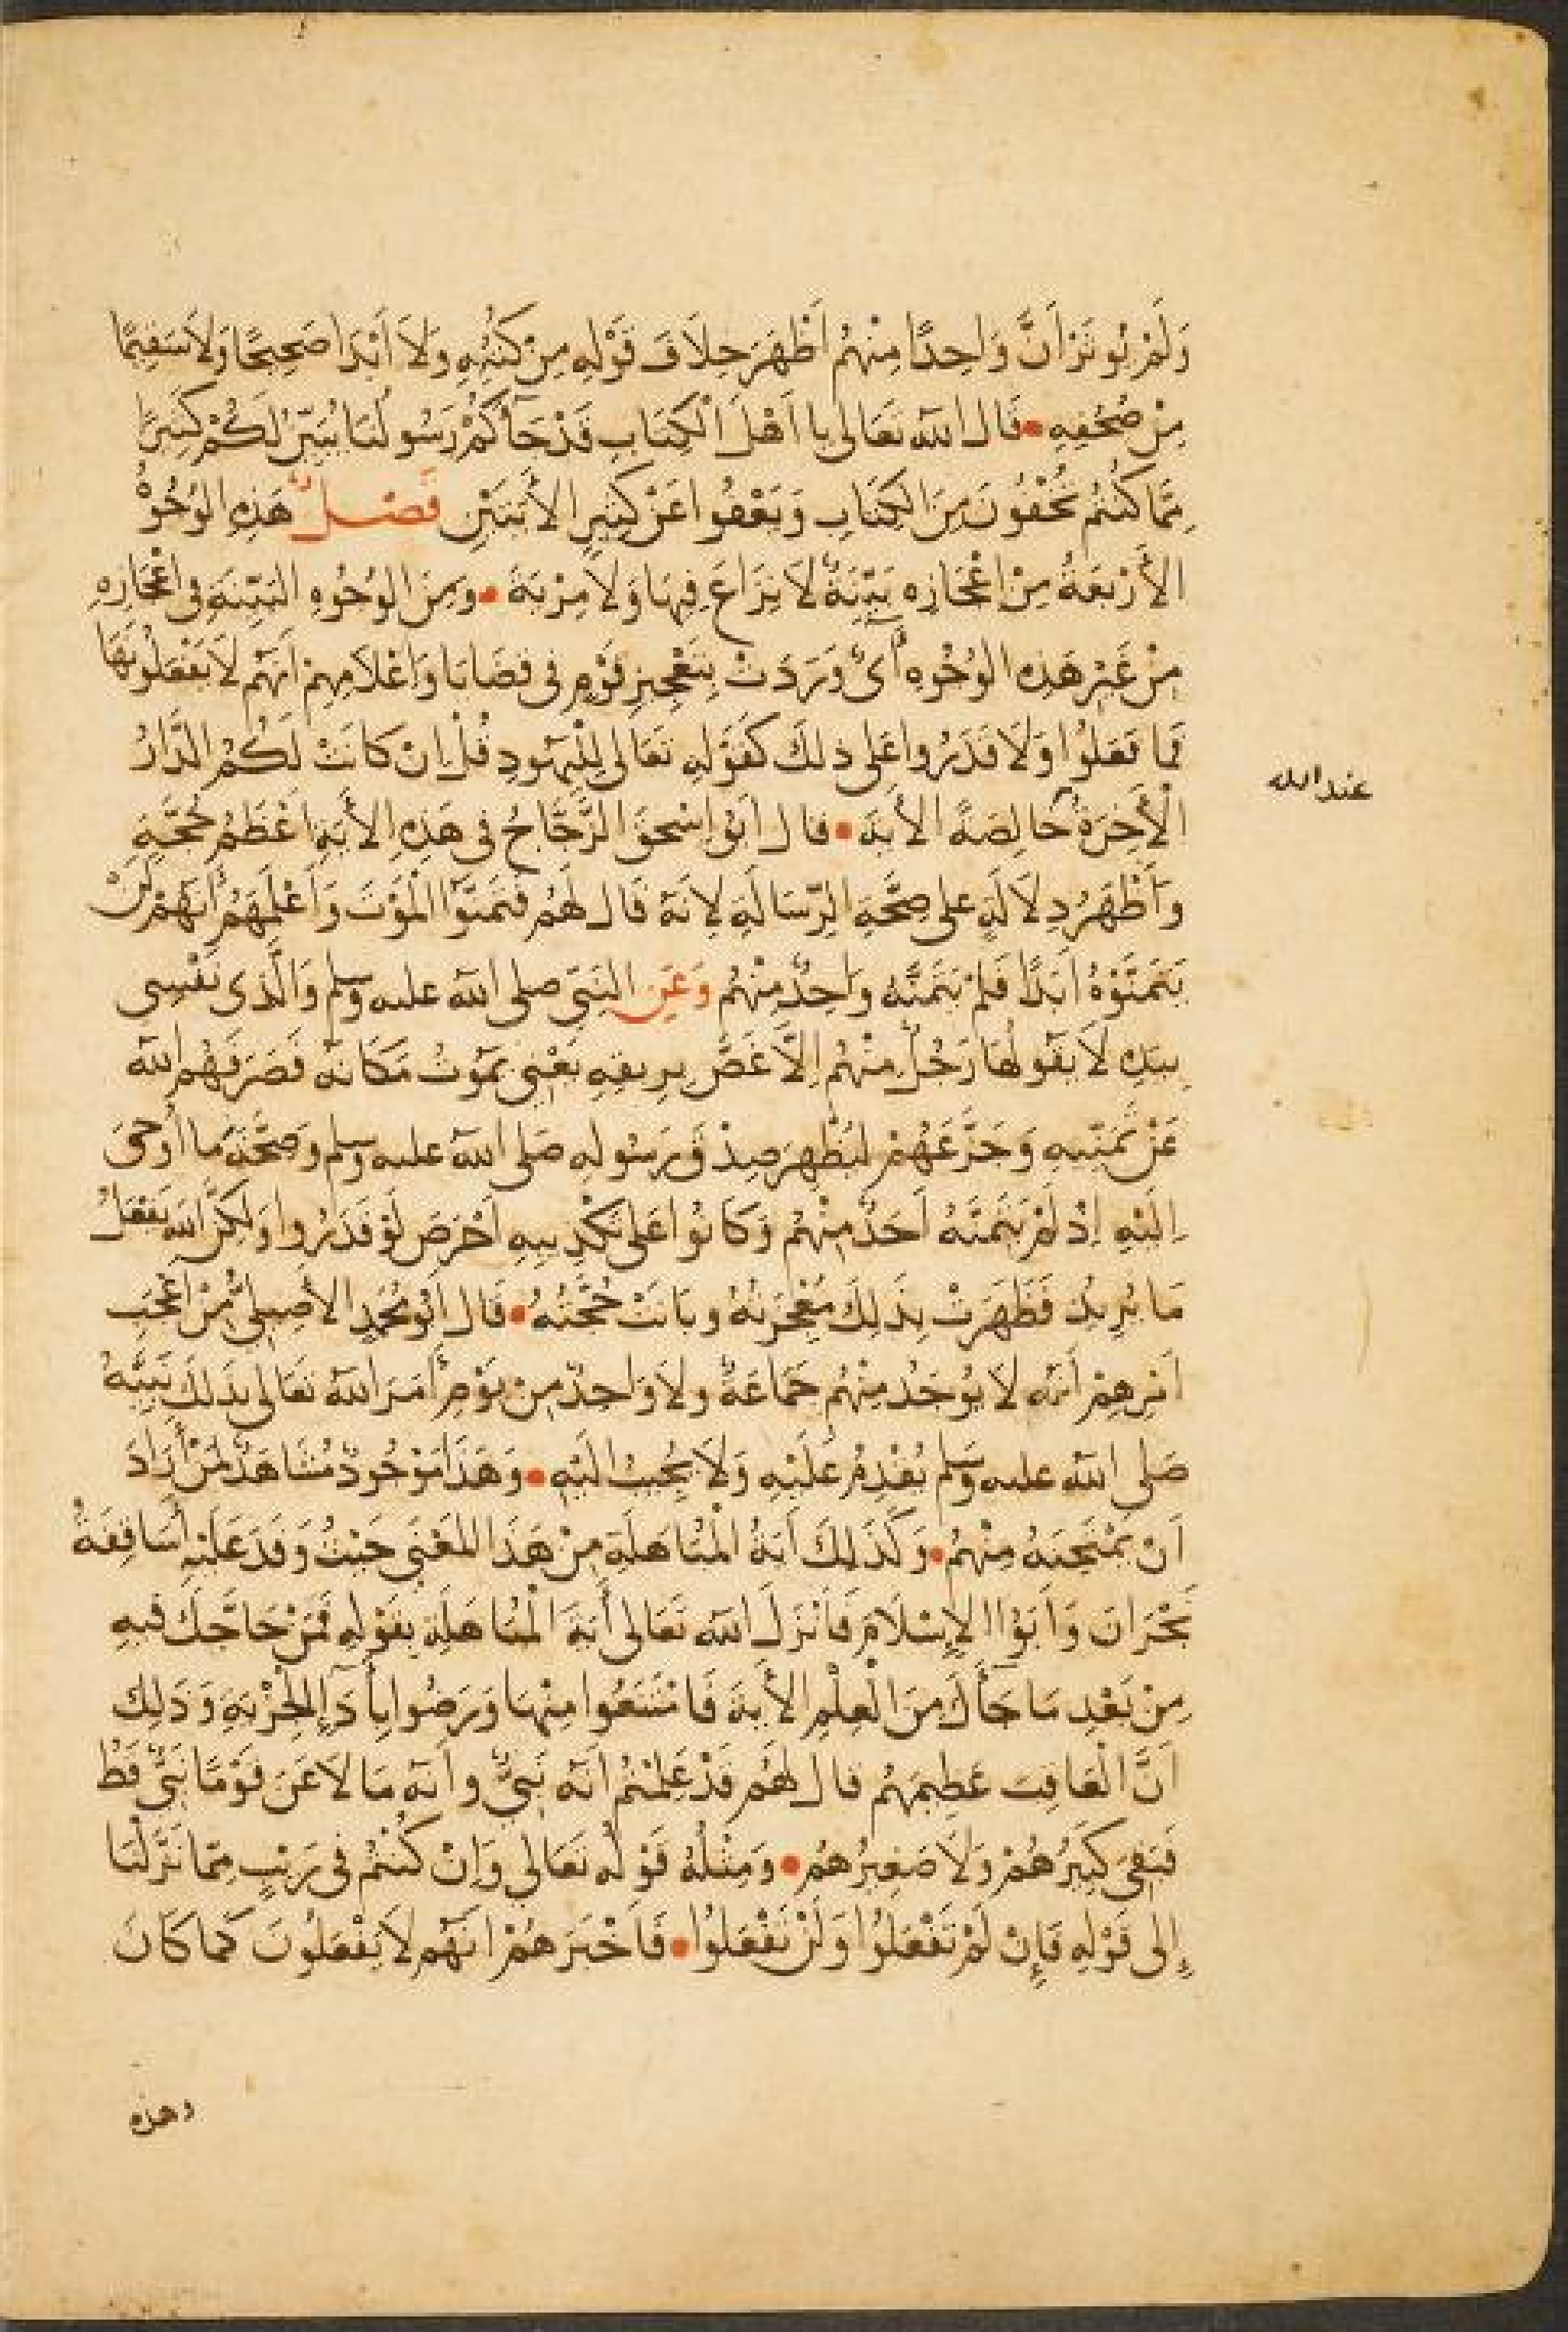 وَلَمْ يُوثَرْ اَنَّ وَاحِدًا مِنْهُمْ اَظْهَرَ خِلَافَ قَوْلِهِ مِنْ كُتُبِهِ وَلَا اَبْدَا صَحِيحًا وَلَا سَقِيمًا
مِنْ صُحُفِهِ • قَالَ اللهُ تَعَالَى يَا اَهْلَ الْكِتَابِ قَدْ جَآءَكُمْ رَسُولُنَا يُبَيِّنُ لَكُمْ كَثِيرًا
مِمَّا كُنْتُمْ تُخْفُونَ مِنَ الْكِتَابِ وَيَعْفُوا عَنْ كَثِيرٍ الْاٰيَتَيْنِ فَصْلٌ هَذِهِ الْوُجُوهُ
الْاَرْبَعَةُ مِنْ اِعْجَازِهِ بَيِّنَةٌ لَا نِزَاعَ فِيهَا وَلَا مِرْيَةَ • وَمِنَ الْوُجُوهِ الْبَيِّنَةِ فِي اِعْجَازِهِ
مِنْ غَيْرِ هَذِهِ الْوُجُوهِ آيٌ وَرَدَتْ بِتَعْجِيزِ قَوْمٍ فِي قَضَايَا وَاِعْلَامِهِمْ اَنَّهُمْ لَا يَفْعَلُونَهَا
فَمَا فَعَلُوا وَلَا قَدَرُوا عَلَى ذٰلِكَ كَقَوْلِهِ تَعَالَى لِلْيَهُودِ قُلْ اِنْ كَانَتْ لَكُمُ الدَّارُ
الْاٰخِرَةُ خَالِصَةً الْاٰيَةَ • قَالَ اَبُو اِسْحٰقَ الزَّجَّاجُ فِي هَذِهِ الْاٰيَةِ اَعْظَمُ حُجَّةٍ
عند الله
وَاَظْهَرُ دِلَالَةٍ عَلَى صِحَّةِ الرِّسَالَةِ لِاَنَّهُ قَالَ لَهُمْ فَتَمَنَّوُا الْمَوْتَ وَاَعْلَمَهُمْ اَنَّهُمْ لَنْ
يَتَمَنَّوْهُ اَبَدًا فَلَمْ يَتَمَنَّهُ وَاحِدٌ مِنْهُمْ وَعَنِ النَّبِيِّ صلى الله عليه وسلم وَالَّذِي نَفْسِي
بِيَدِهِ لَا يَقُولُهَا رَجُلٌ مِنْهُمْ اِلَّا غَصَّ بِرِيقِهِ يَعْنِي يَمُوتُ مَكَانَهُ فَصَرَفَهُمُ اللهُ
عَنْ تَمَنِّيهِ وَجَزَّعَهُمْ لِيُظْهِرَ صِدْقَ رَسُولِهِ صلى الله عليه وسلم وَصِحَّةَ مَا اُوحِيَ
اِلَيْهِ اِذْ لَمْ يَتَمَنَّهُ اَحَدٌ مِنْهُمْ وَكَانُوا عَلَى تَكْذِيبِهِ اَحْرَصَ لَوْ قَدَرُوا وَلَكِنَّ اللهَ يَفْعَلُ
مَا يُرِيدُ فَظَهَرَتْ بِذٰلِكَ مُعْجِزَتُهُ وَبَانَتْ حُجَّتُهُ • قَالَ اَبُو مُحَمَّدٍ الْاَصِيلِيُّ مِنْ اَعْجَبِ
اَمْرِهِمْ اَنَّهُ لَا يُوجَدُ مِنْهُمْ جَمَاعَةٌ وَلَا وَاحِدٌ مِنْ يَوْمِ اَمَرَ اللهُ تَعَالَى بِذٰلِكَ نَبِيَّهُ
صلى الله عليه وسلم يُقْدِمُ عَلَيْهِ وَلَا يُجِيبُ اِلَيْهِ • وَهَذَا مَوْجُودٌ مُشَاهَدٌ لِمَنْ اَرَادَ
اَنْ يَمْتَحِنَهُ مِنْهُمْ • وَكَذٰلِكَ اٰيَةُ الْمُبَاهَلَةِ مِنْ هَذَا الْمَعْنَى حَيْثُ وَفَدَ عَلَيْهِ اَسَاقِفَةُ
نَجْرَانَ وَاَبَوُا الْاِسْلَامَ فَاَنْزَلَ اللهُ تَعَالَى اٰيَةَ الْمُبَاهَلَةِ بِقَوْلِهِ فَمَنْ حَاجَّكَ فِيهِ
مِنْ بَعْدِ مَا جَآءَكَ مِنَ الْعِلْمِ الْاٰيَةَ فَامْتَنَعُوا مِنْهَا وَرَضُوا بِاَدَاءِ الْجِزْيَةِ وَذٰلِكَ
اَنَّ الْعَاقِبَ عَظِيمَهُمْ قَالَ لَهُمْ قَدْ عَلِمْتُمْ اَنَّهُ نَبِيٌّ وَاَنَّهُ مَا لَاعَنَ قَوْمًا نَبِيٌّ قَطُّ
فَبَقِيَ كَبِيرُهُمْ وَلَا صَغِيرُهُمْ • وَمِثْلُهُ قَوْلُهُ تَعَالَى وَاِنْ كُنْتُمْ فِي رَيْبٍ مِمَّا نَزَّلْنَا
اِلَى قَوْلِهِ فَاِنْ لَمْ تَفْعَلُوا وَلَنْ تَفْعَلُوا • فَاَخْبَرَهُمْ اَنَّهُمْ لَا يَفْعَلُونَ كَمَا كَانَ
وهذه